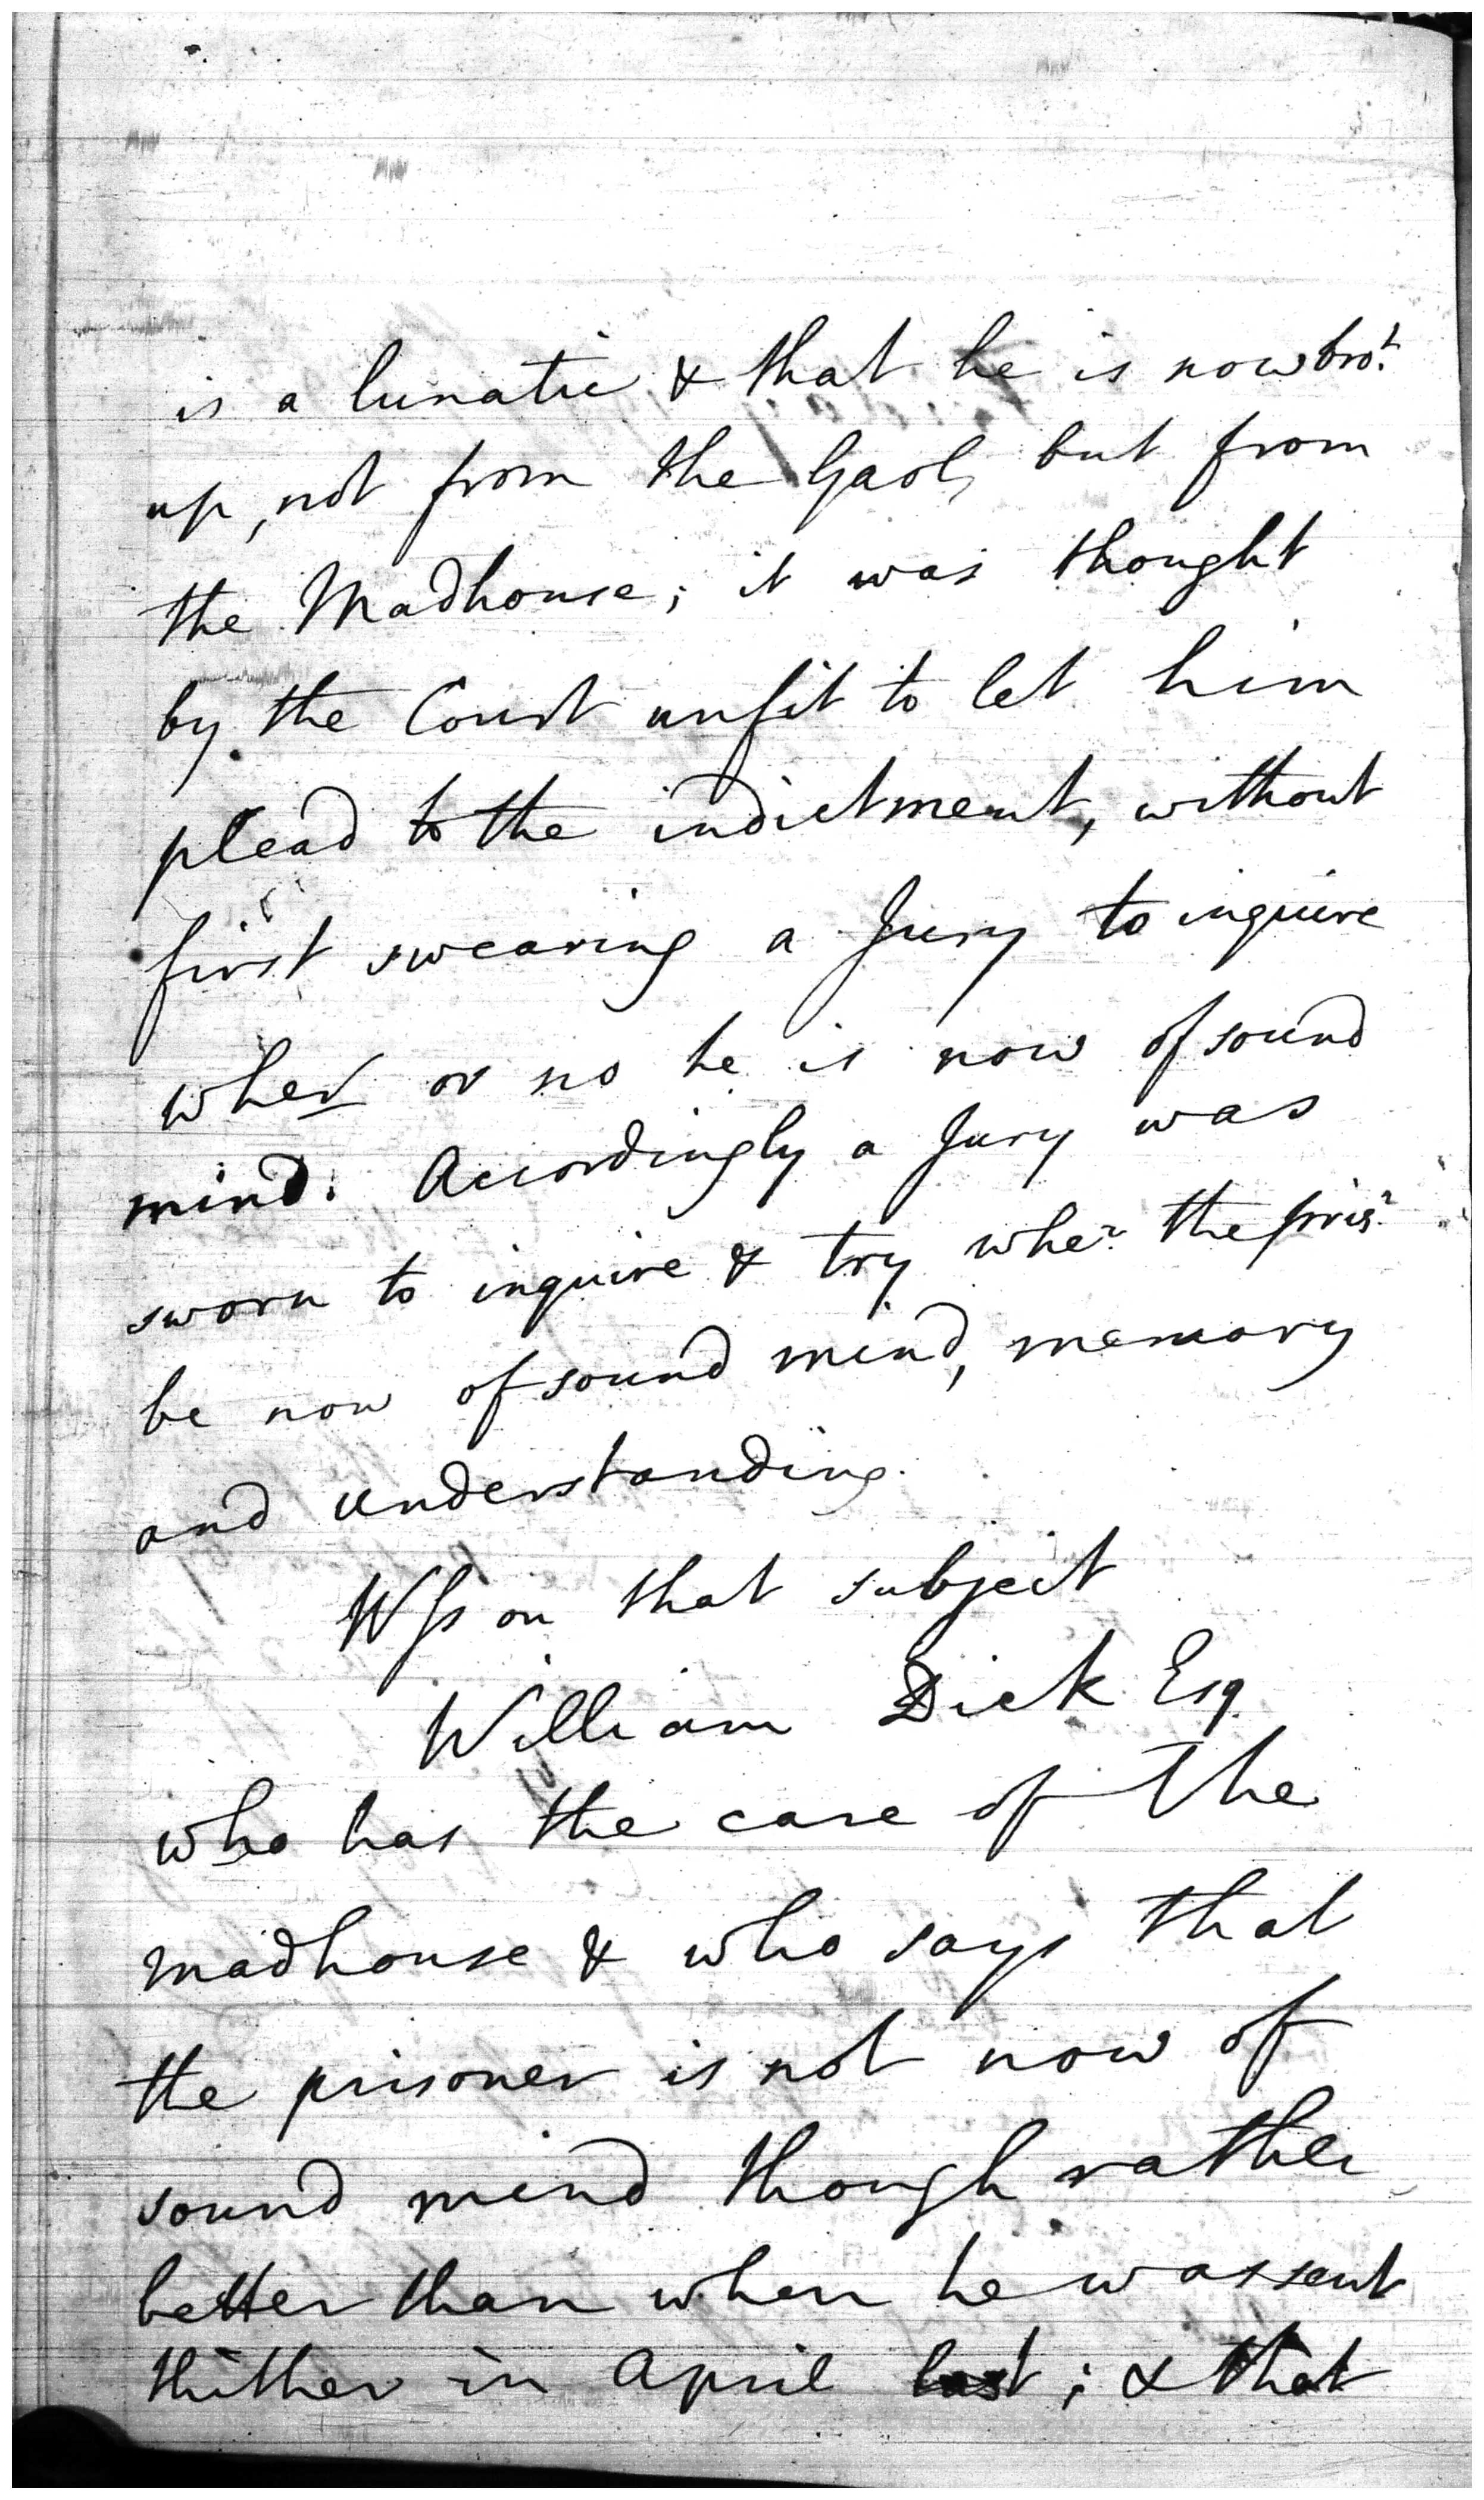 is a lunatic & that he is now bro.t
up, not from the Gaol, but from
the Madhouse; it was thought
by the Court unfit to let him
plead to the indictment, without
first swearing a Jury to inquire
wher or no he is now of sound
mind. Accordingly a Jury was
sworn to inquire & try whe.r the pris.r
be now of sound mind, memory
and understanding.
Wss on that subject
William Dick Esq.
who has the care of the
madhouse & who says that
the prisoner is not now of
sound mind though rather
better than when he was sent
thither in April last; & that